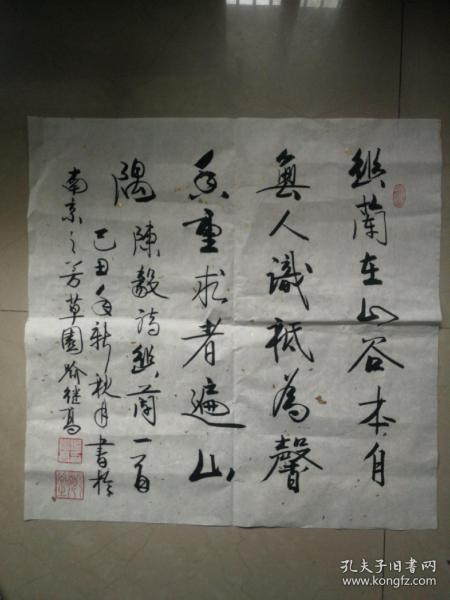 幽蘭在山谷本自
無人識祇為馨
香重求者遍山
隅 陳毅詩幽蘭一首
己丑年新秋月書於
南京之芳草園喻继高
孔夫子旧书网
www.kongfz.com